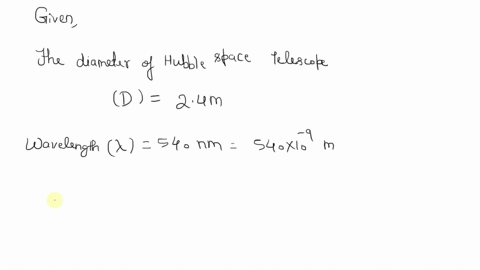 Given,
The diameter of Hubble space telescope
(D) = 2.4m
Wavelength (λ) = 540 nm = 540×10⁻⁹ m